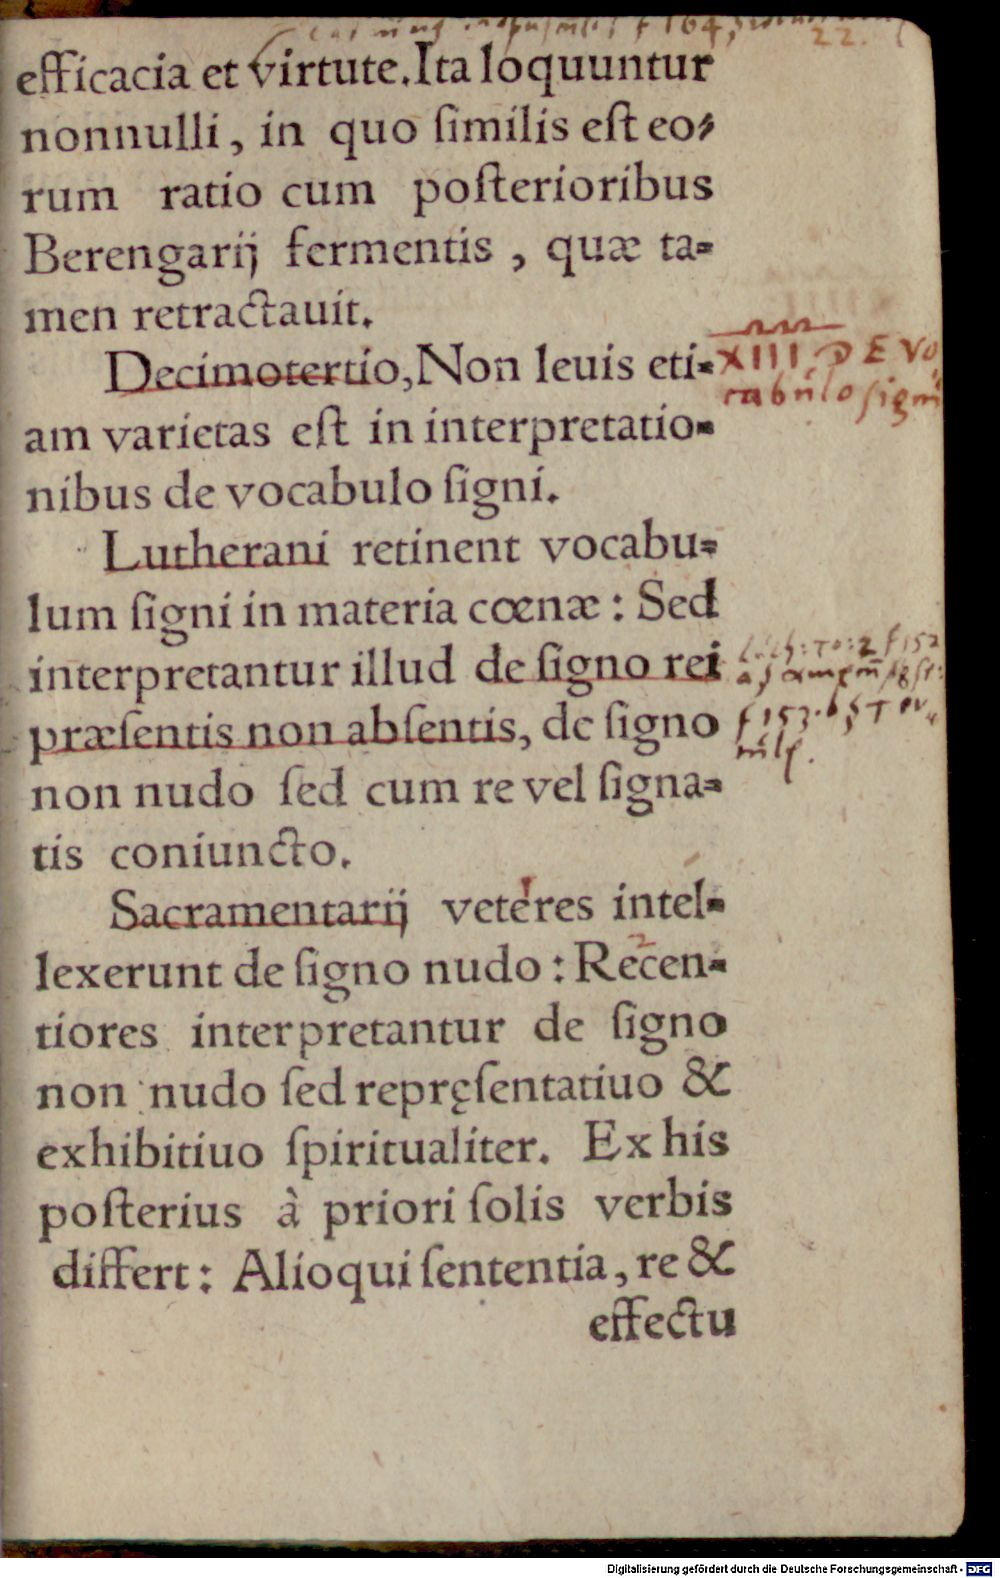 22.
efficacia et virtute. Ita loquuntur
nonnulli, in quo ſimilis eſt eo⸗
rum ratio cum poſterioribus
Berengarij fermentis, quæ ta⸗
men retractauit.
Decimotertio, Non leuis eti⸗
am varietas eſt in interpretatio⸗
nibus de vocabulo ſigni.
XIII DE VO
cabulo signi
Lutherani retinent vocabu⸗
lum ſigni in materia cœnæ: Sed
interpretantur illud de ſigno rei
præſentis non abſentis, de ſigno
non nudo ſed cum re vel ſigna⸗
tis coniuncto.
Sacramentarij veteres intel⸗
lexerunt de ſigno nudo: Recen⸗
tiores interpretantur de ſigno
non nudo ſed repręſentatiuo &
exhibitiuo ſpiritualiter. Ex his
poſterius à priori ſolis verbis
differt: Alioqui ſententia, re &
effectu
Digitalisierung gefördert durch die Deutsche Forschungsgemeinschaft - DFG